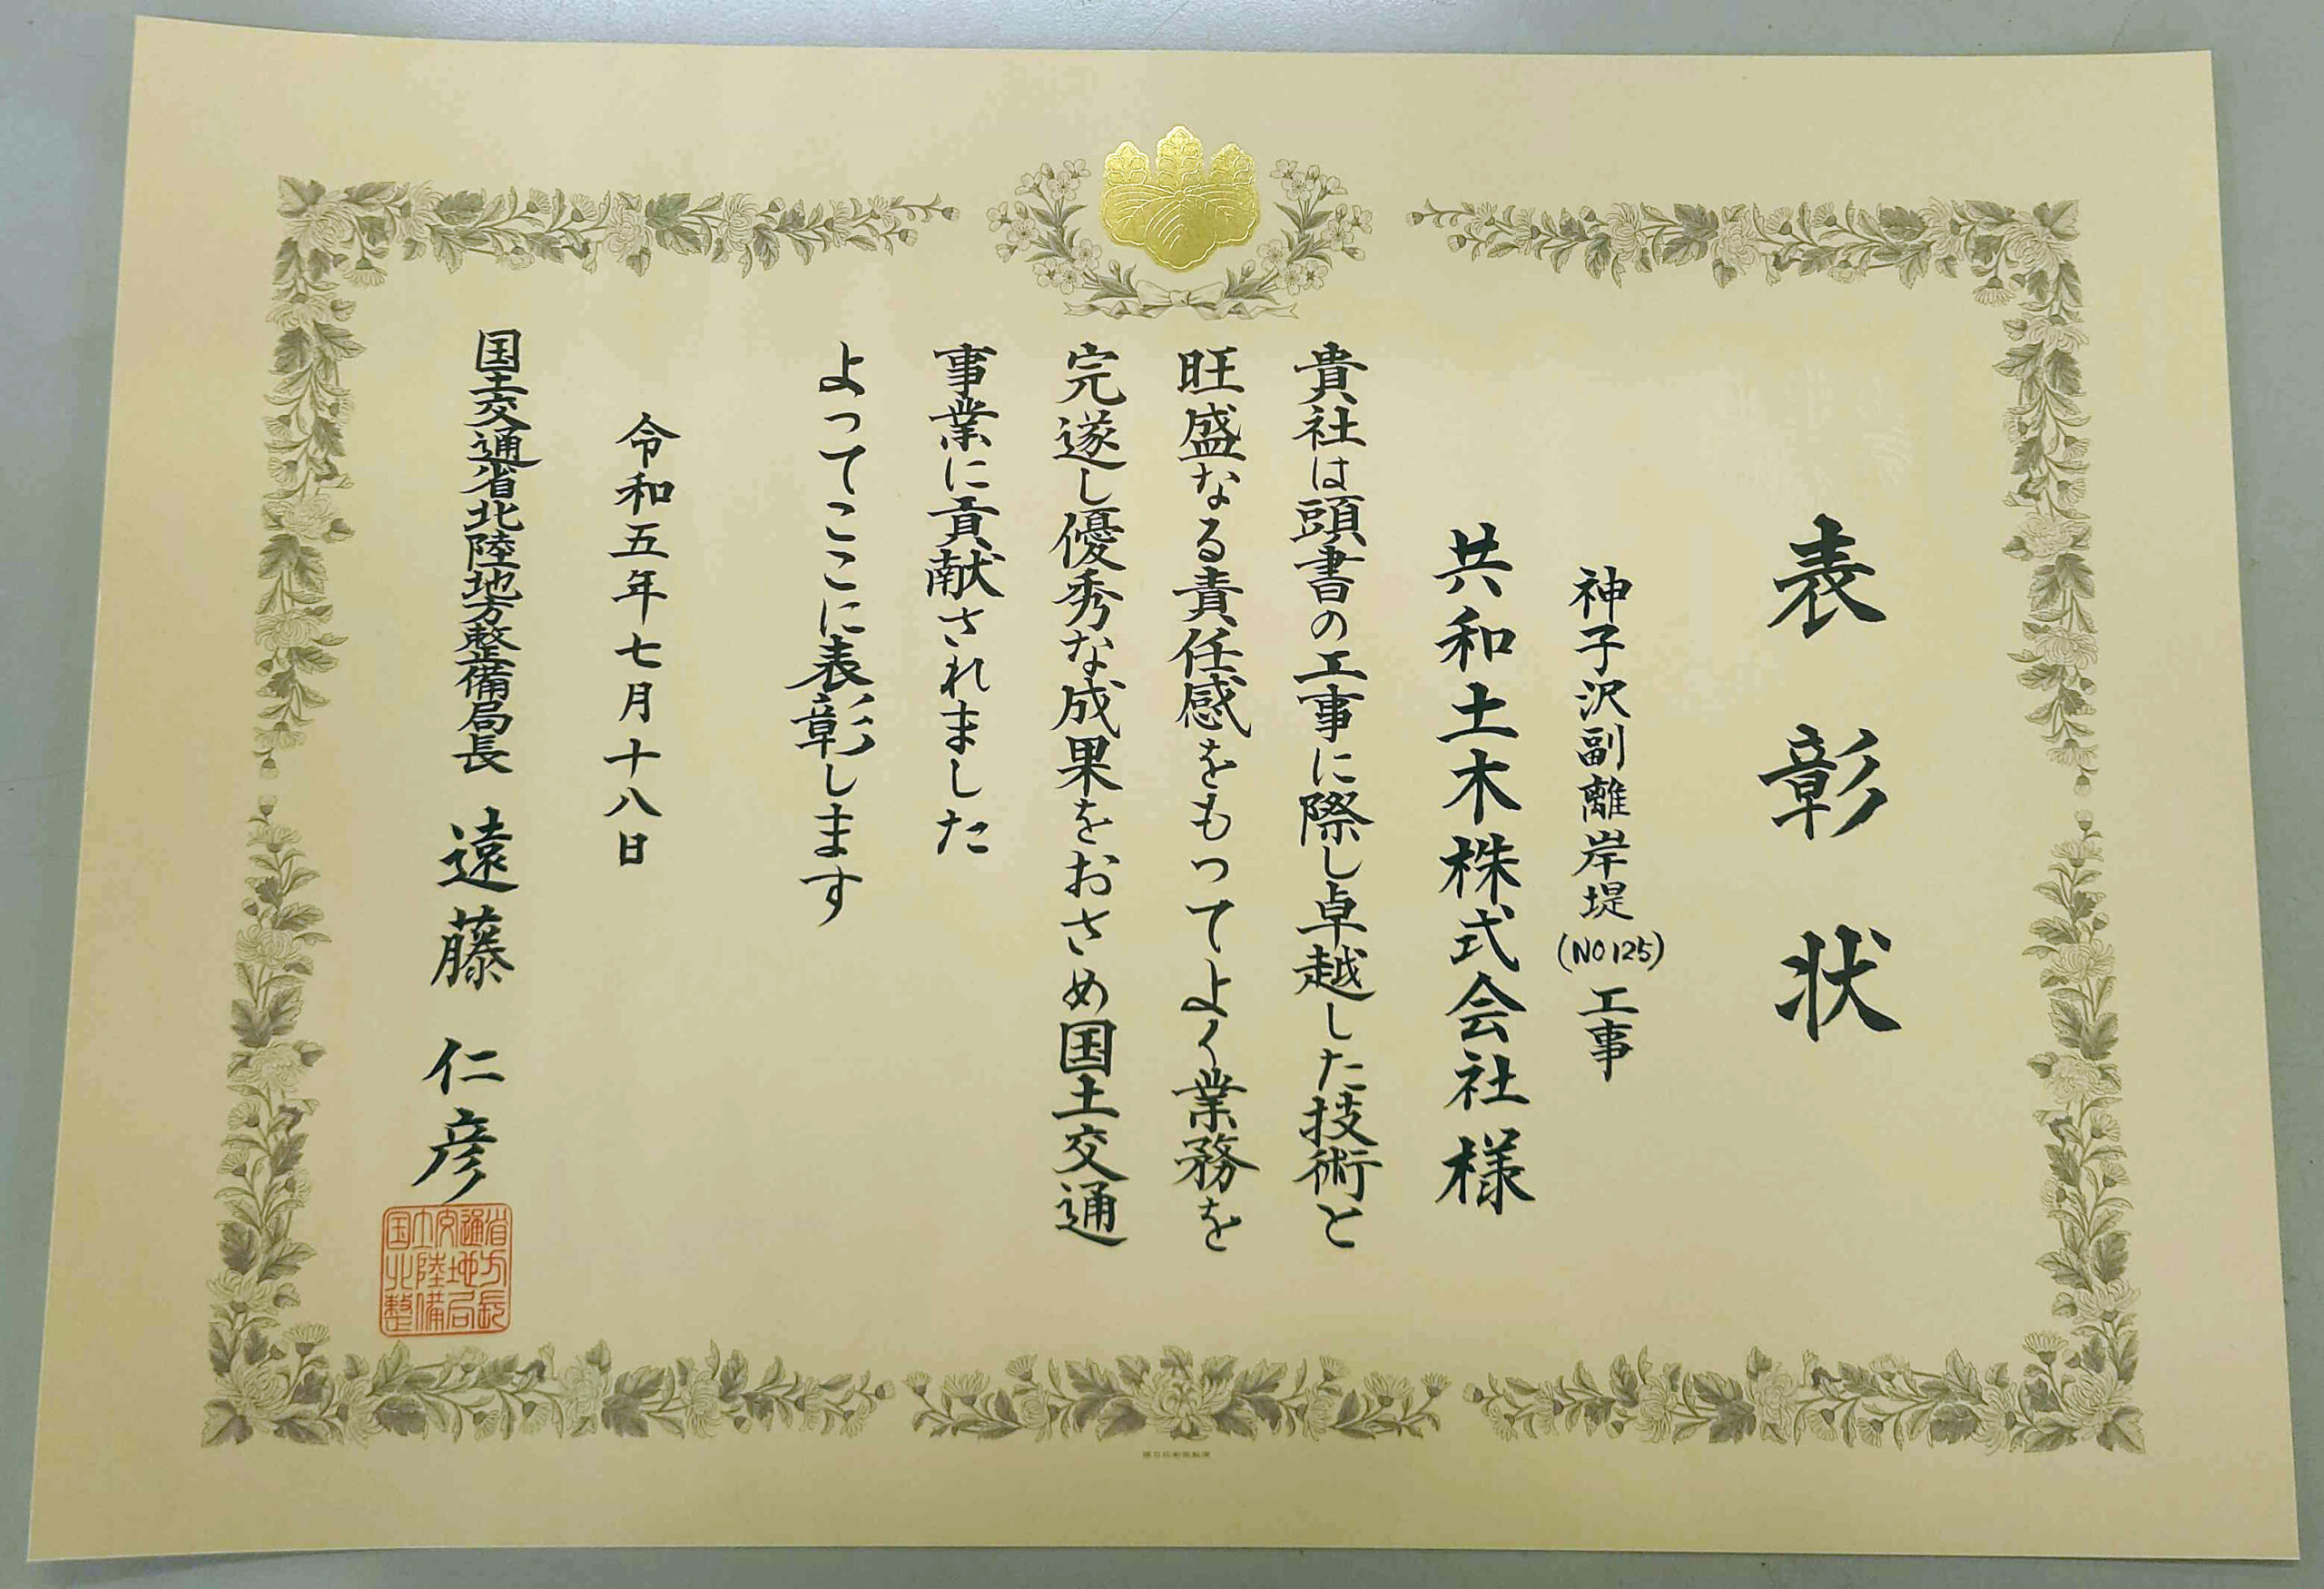 表彰状
神子沢副離岸堤(NO125)工事
共和土木株式会社様
貴社は頭書の工事に際し卓越した技術と
旺盛なる責任感をもつてよく業務を
完遂し優秀な成果をおさめ国土交通
事業に貢献されました
よってここに表彰します
令和五年七月十八日
国土交通省北陸地方整備局長 遠藤仁彦
国土交通省
北陸地方
整備局長